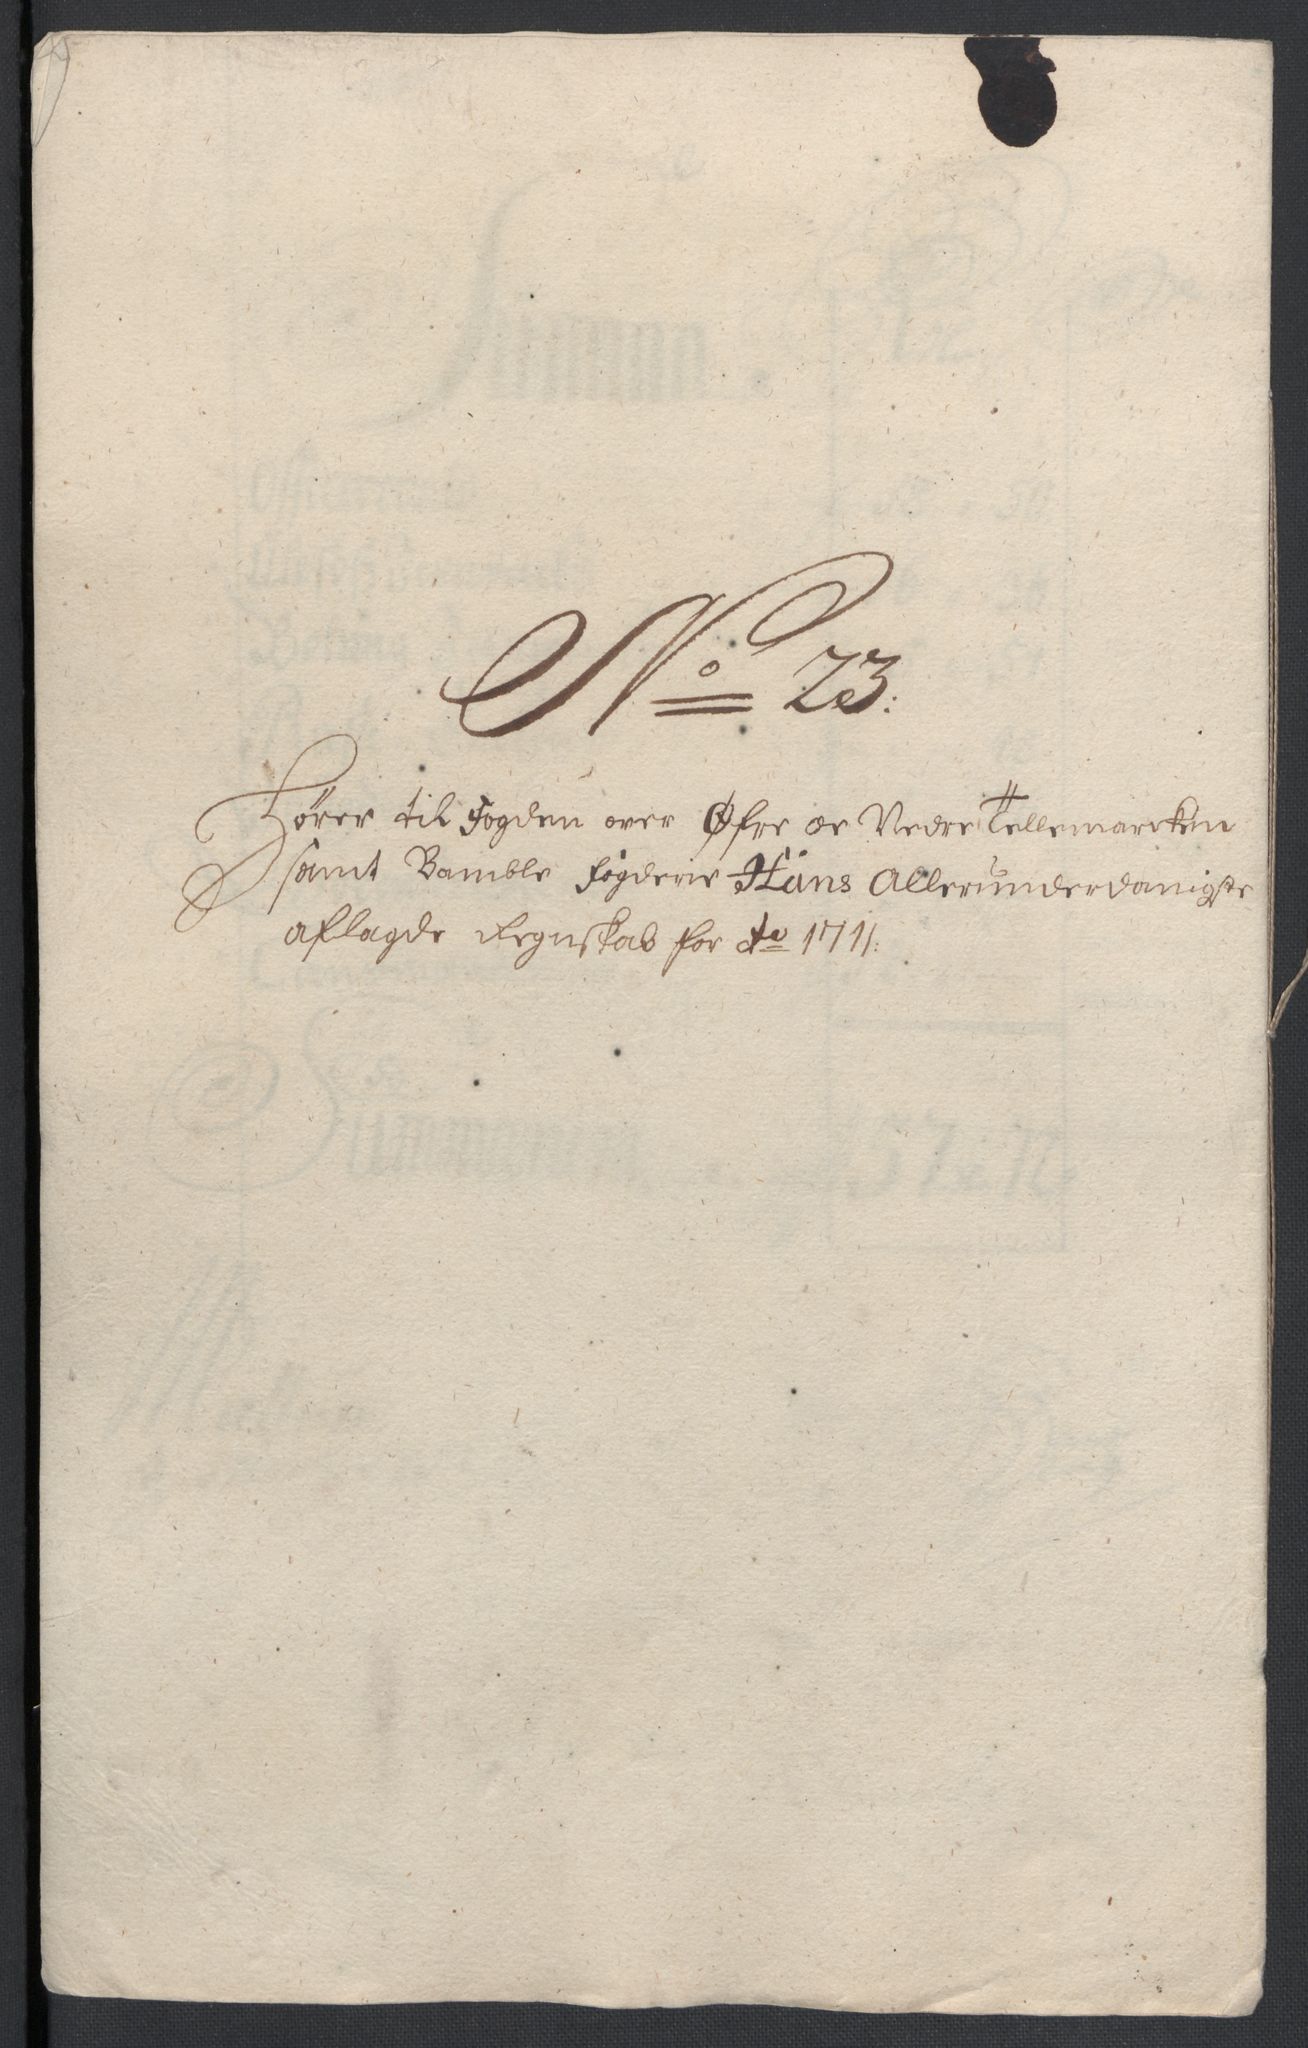 No 23.
Hører til Fogden over Øfre oc Nedre Tellemarcken
samt Bamble fogderie Hans Allerunderdanigste
aflagde Regnskab for Ao 1711.